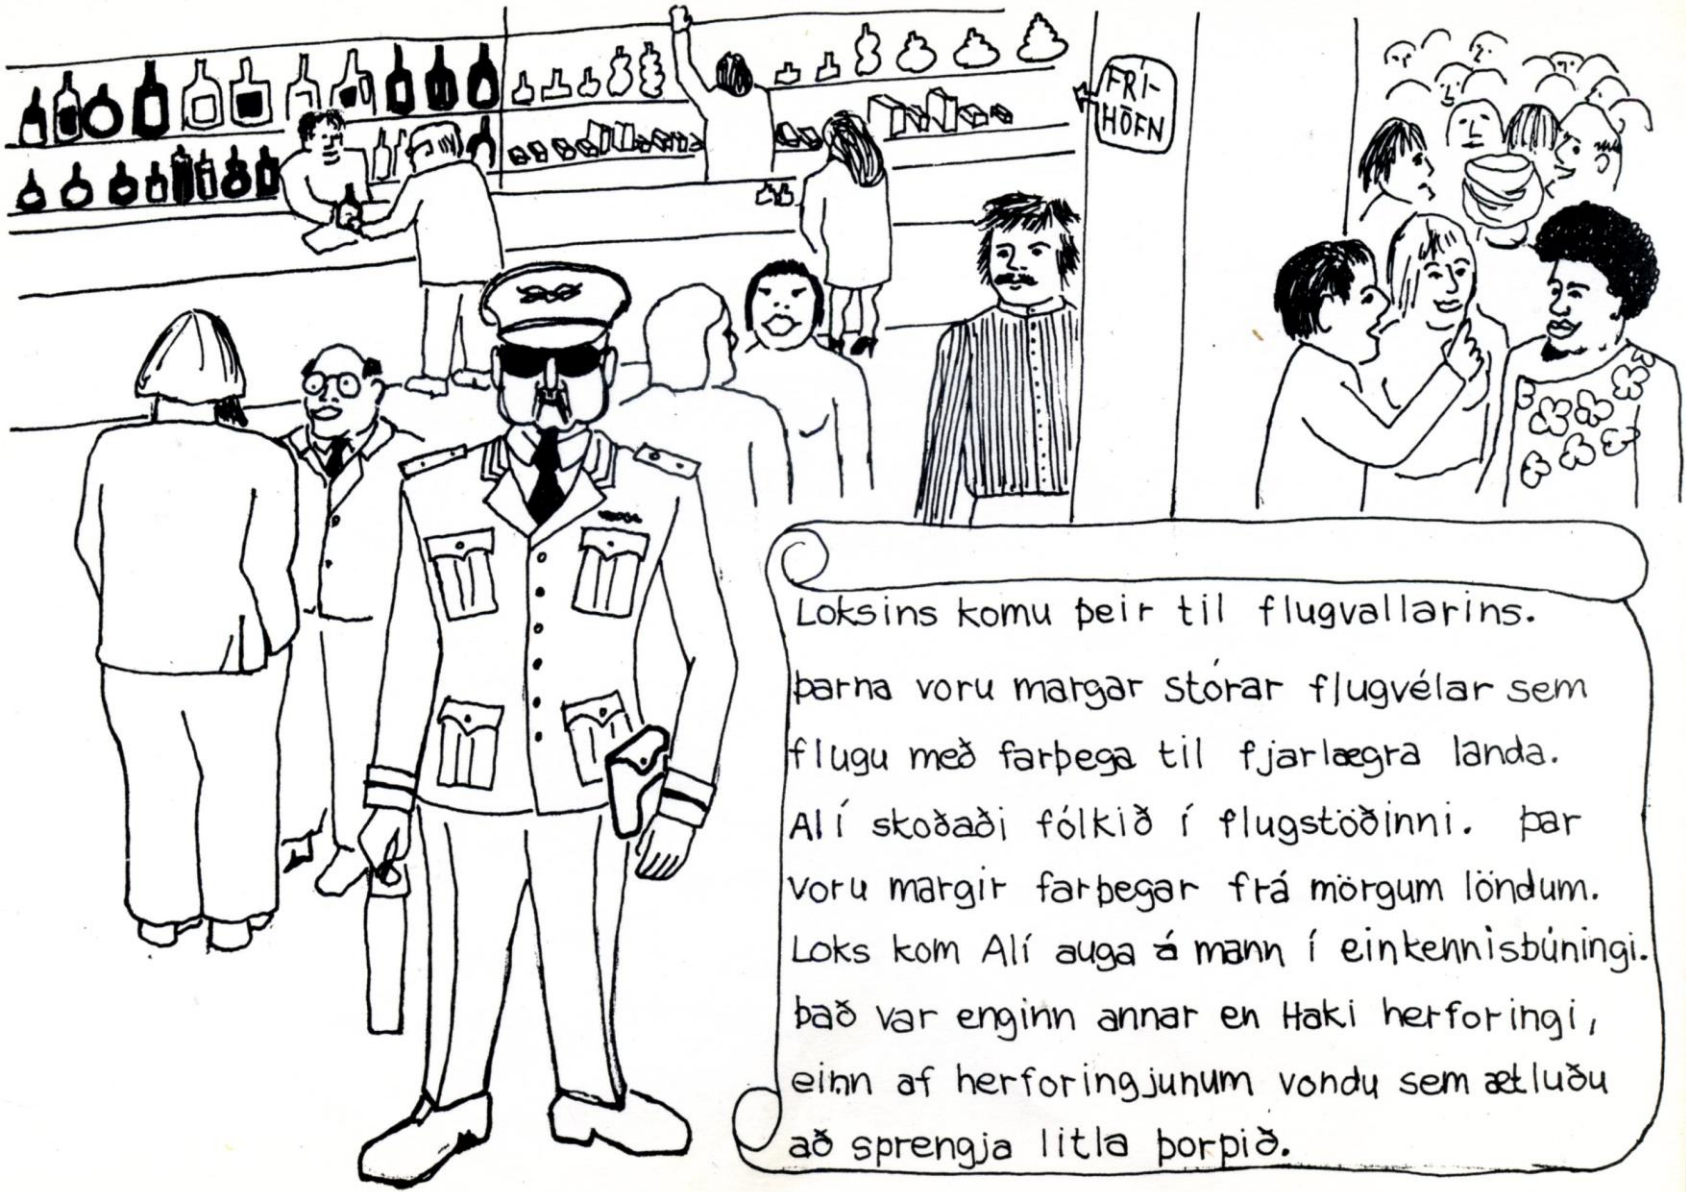 FRÍ-
HÖFN
Loksins komu þeir til flugvallarins.
Þarna voru margar stórar flugvélar sem
flugu með farþega til fjarlægra landa.
Alí skoðaði fólkið í flugstöðinni. Þar
voru margir farþegar frá mörgum löndum.
Loks kom Alí auga á mann í einkennisbúningi.
Það var enginn annar en Haki herforingi,
einn af herforingjunum vondu sem ætluðu
að sprengja litla þorpið.